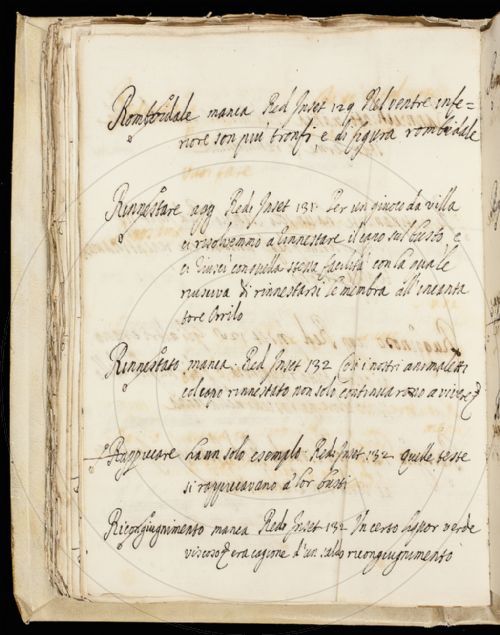 Romboidale manca Red Inset 129 Nel ventre infe=
riore son piu tronfi, e di figura romboidale
Rinnestare agg Red: Inset 131 Per un giuoco da villa
ci risolvemmo a rinnestare il capo sul busto e
ci riusci con quella stessa facilità con la quale
riusciva di rinnestarsi le membra all'incanta
tore Orrilo
Rinnestato manca. Red Inset 132 Così i nostri animaletti
col capo rinnestato non solo continuarono a vivere
Rappiccare Ha un solo esempio. Red: Inset 132 quelle teste
si rappiccavano a' lor busti
Ricongiugnimento manca Red: Inset 132 Un certo licor verde
viscoso era cagione d'un saldo ricongiugnimento